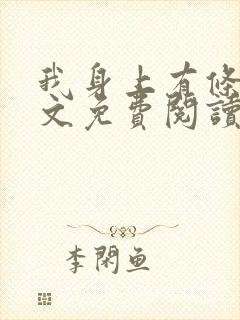 我身上有條
文免費閱讀
李閑魚